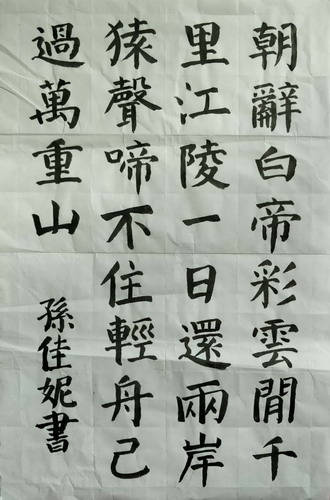 朝辭白帝彩雲間千
里江陵一日還兩岸
猿聲啼不住輕舟己
過萬重山
孫佳妮書